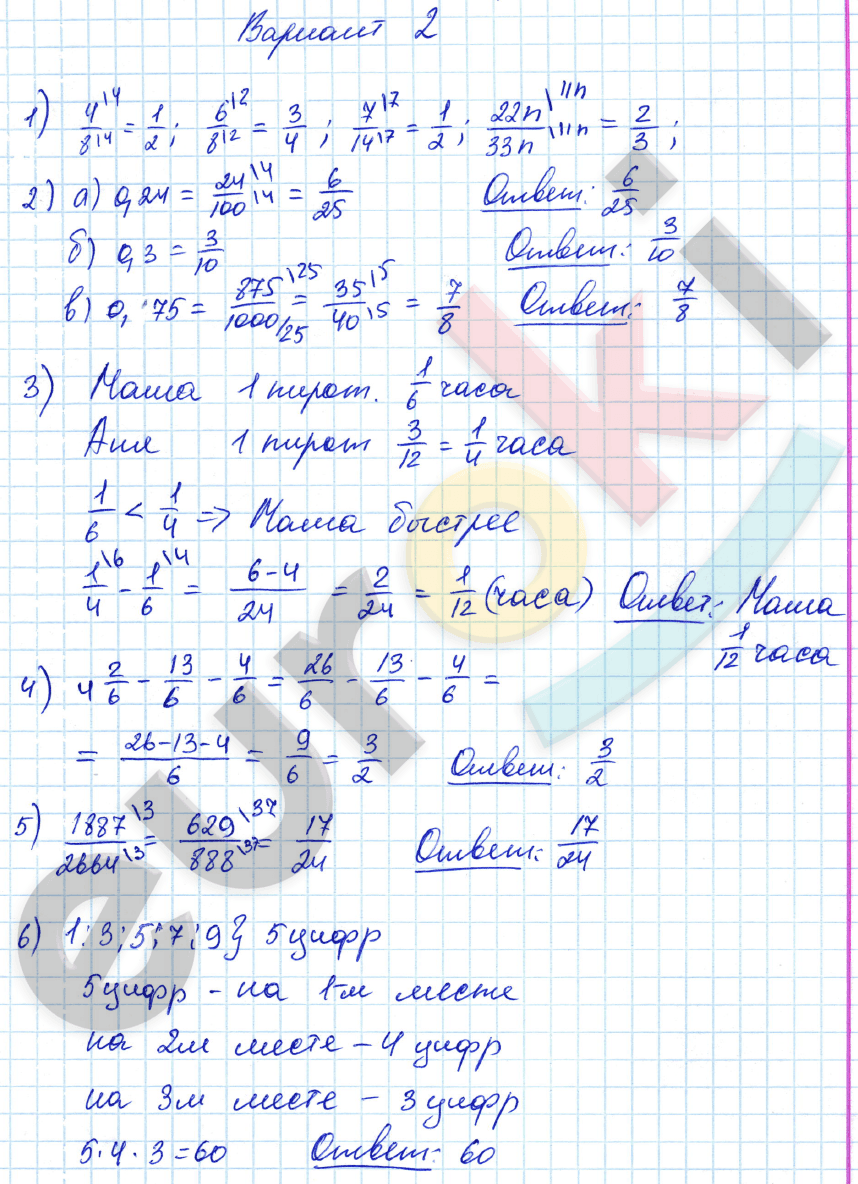 Вариант 2
1) 4\4/8\4 = 1/2; 6\2/8\2 = 3/4; 7\7/14\7 = 1/2; 22n\11n/33n\11n = 2/3;
2) а) 0,24 = 24\4/100\4 = 6/25 Ответ: 6/25
б) 0,3 = 3/10 Ответ: 3/10
в) 0, 75 = 875\25/1000/25 = 35\5/40\5 = 7/8 Ответ: 7/8
3) Маша 1 пирож. 1/6 часа
Аня 1 пирож 3/12 = 1/4 часа
1/6 < 1/4 => Маша быстрее
1\6/4 - 1\4/6 = 6-4/24 = 2/24 = 1/12 (часа) Ответ: Маша
1/12 часа
4) 4 2/6 - 13/6 - 4/6 = 26/6 - 13/6 - 4/6 =
= 26-13-4/6 = 9/6 = 3/2 Ответ: 3/2
5) 1887\3/2664\3 = 629\37/888\37 = 17/24 Ответ: 17/24
6) 1; 3; 5; 7; 9} 5 цифр
5 цифр - на 1-м месте
на 2м месте - 4 цифр
на 3м месте - 3 цифр
5·4·3=60 Ответ: 60
euroki